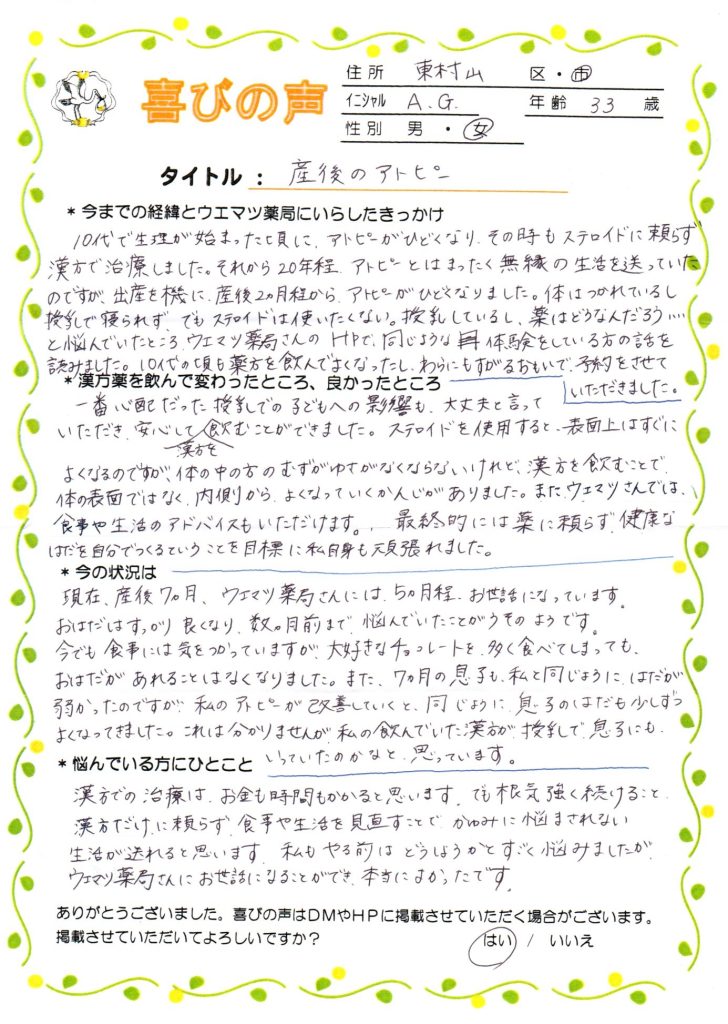 喜びの声
住所 東村山 区・市
イニシャル A.G. 年齢 33 歳
性別 男・女
タイトル： 産後のアトピー
＊今までの経緯とウエマツ薬局にいらしたきっかけ
10代で生理が始まった頃に、アトピーがひどくなり、その時もステロイドに頼らず
漢方で治療しました。それから20年程、アトピーとはまったく無縁の生活を送っていた
のですが、出産を機に、産後2ヵ月程から、アトピーがひどくなりました。体はつかれているし
授乳で寝られず、でもステロイドは使いたくない。授乳しているし、薬はどうなんだろう‥‥
と悩んでいたところ、ウエマツ薬局さんのHPで、同じような体験をしている方の話を
読みました。10代の頃も漢方を飲んでよくなったし、わらにもすがるおもいで、予約をさせて
いただきました。
＊漢方薬を飲んで変わったところ、良かったところ
一番心配だった授乳での子どもへの影響も、大丈夫と言って
いただき、安心して漢方を飲むことができました。ステロイドを使用すると、表面上はすぐに
よくなるのですが、体の中の方のむずがゆさがなくならないけれど、漢方を飲むことで、
体の表面ではなく、内側から、よくなっていくかんじがありました。また、ウエマツさんでは、
食事や生活のアドバイスもいただけます。最終的には薬に頼らず、健康な
はだを自分でつくるということを目標に私自身も頑張れました。
＊今の状況は
現在、産後7ヵ月、ウエマツ薬局さんには、5ヵ月程、お世話になっています。
おはだはすっかり良くなり、数ヵ月前まで、悩んでいたことがうそのようです。
今でも食事には気をつかっていますが、大好きなチョコレートを、多く食べてしまっても、
おはだがあれることはなくなりました。また、7ヵ月の息子も、私と同じように、はだが
弱かったのですが、私のアトピーが改善していくと、同じように、息子のはだも少しずつ
よくなってきました。これは分かりませんが、私の飲んでいた漢方が、授乳で、息子にも、
いっていたのかなと、思っています。
＊悩んでいる方にひとこと
漢方での治療は、お金も時間もかかると思います。でも根気強く続けること、
漢方だけに頼らず、食事や生活を見直すことで、かゆみに悩まされない
生活が送れると思います。私もやる前はどうしようかとすごく悩みましたが、
ウエマツ薬局さんにお世話になることができ、本当によかったです。
ありがとうございました。喜びの声はDMやHPに掲載させていただく場合がございます。
掲載させていただいてよろしいですか？ はい / いいえ